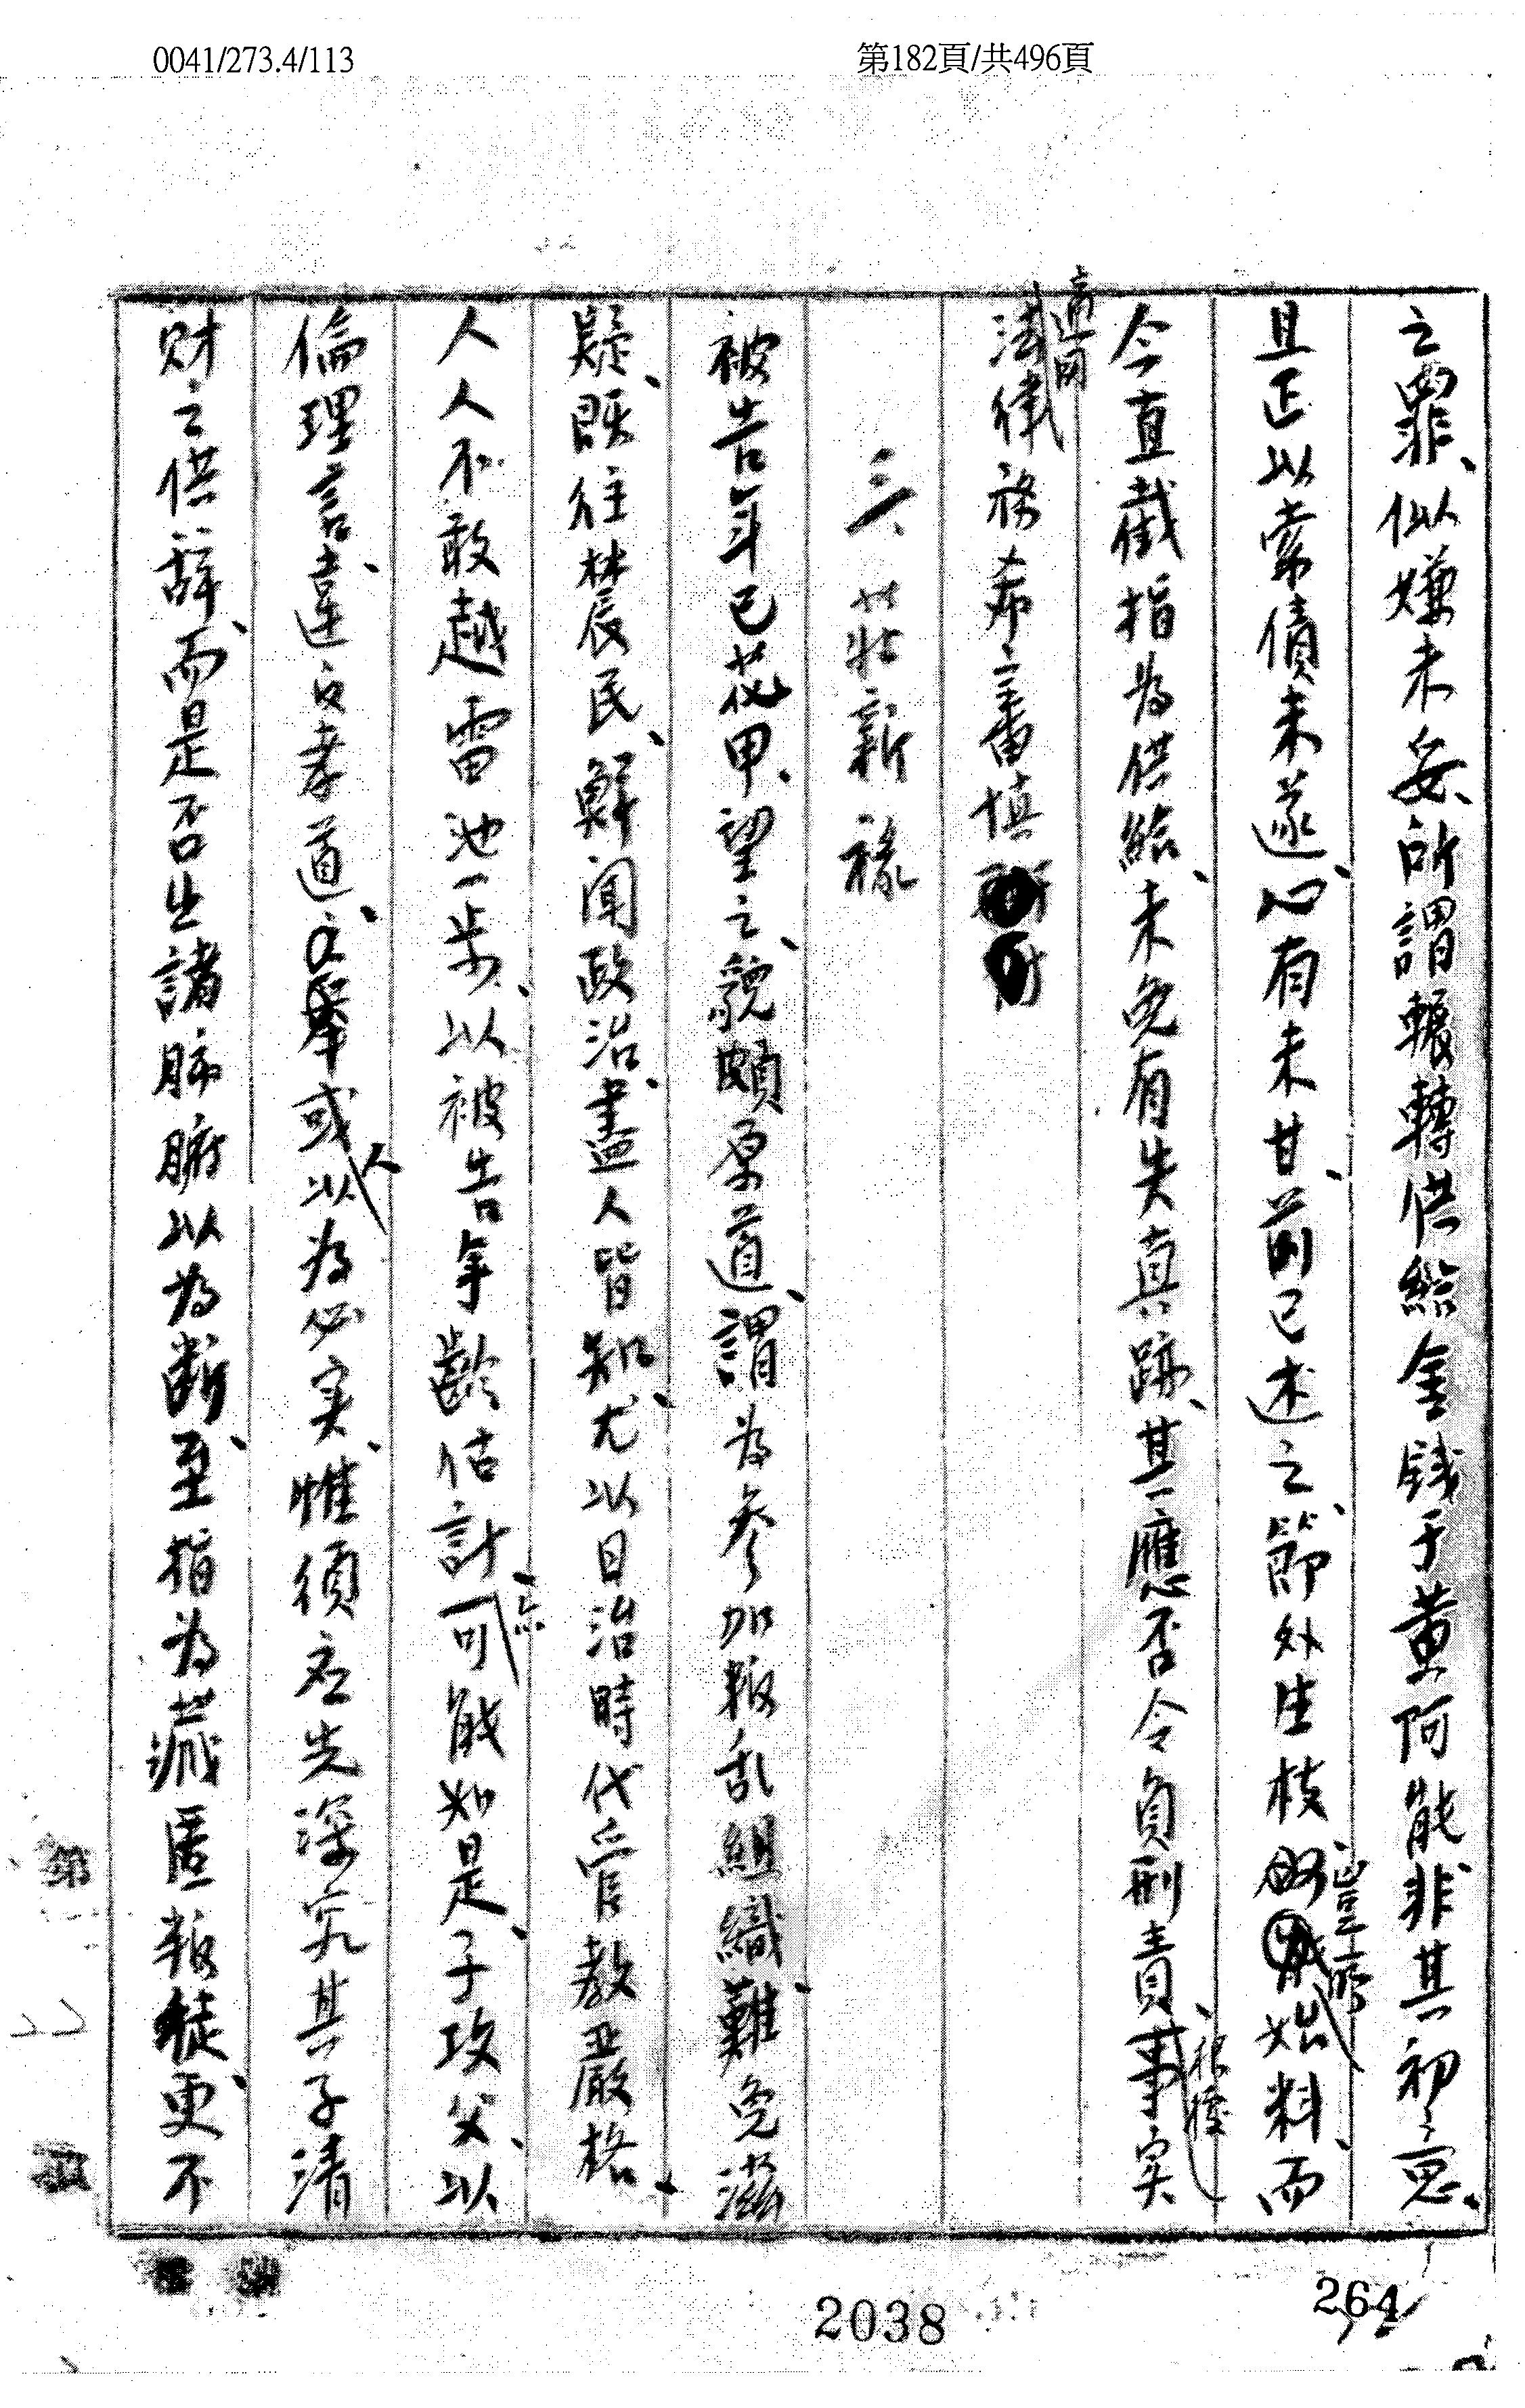 0041/273.4/113
第182頁/共496頁
之罪、似嫌未妥、所謂輾轉供給金錢于黃阿能非其初意、
且正以索債未遂、心有未甘、前已述之、節外生枝、豈所始料、而
今直截指為供給、未免有失真跡、其應否令負刑責、根據事实
適用法律務希審慎
三、莊新祿
被告年已花甲、望之、貌頗厚道、謂為參加叛乱組織、難免滋
疑、既往農民、鮮聞政治、盡人皆知、尤以日治時代管教嚴格、
人人不敢越雷池一步、以被告年齡估計、亦可能如是、子攻父、以
倫理言、違文孝道、之舉或人以為必实、惟須应先深究其子清
財之供辞、而是否出諸肺腑以為断、至指為藏匿叛徒、更不
2038
264